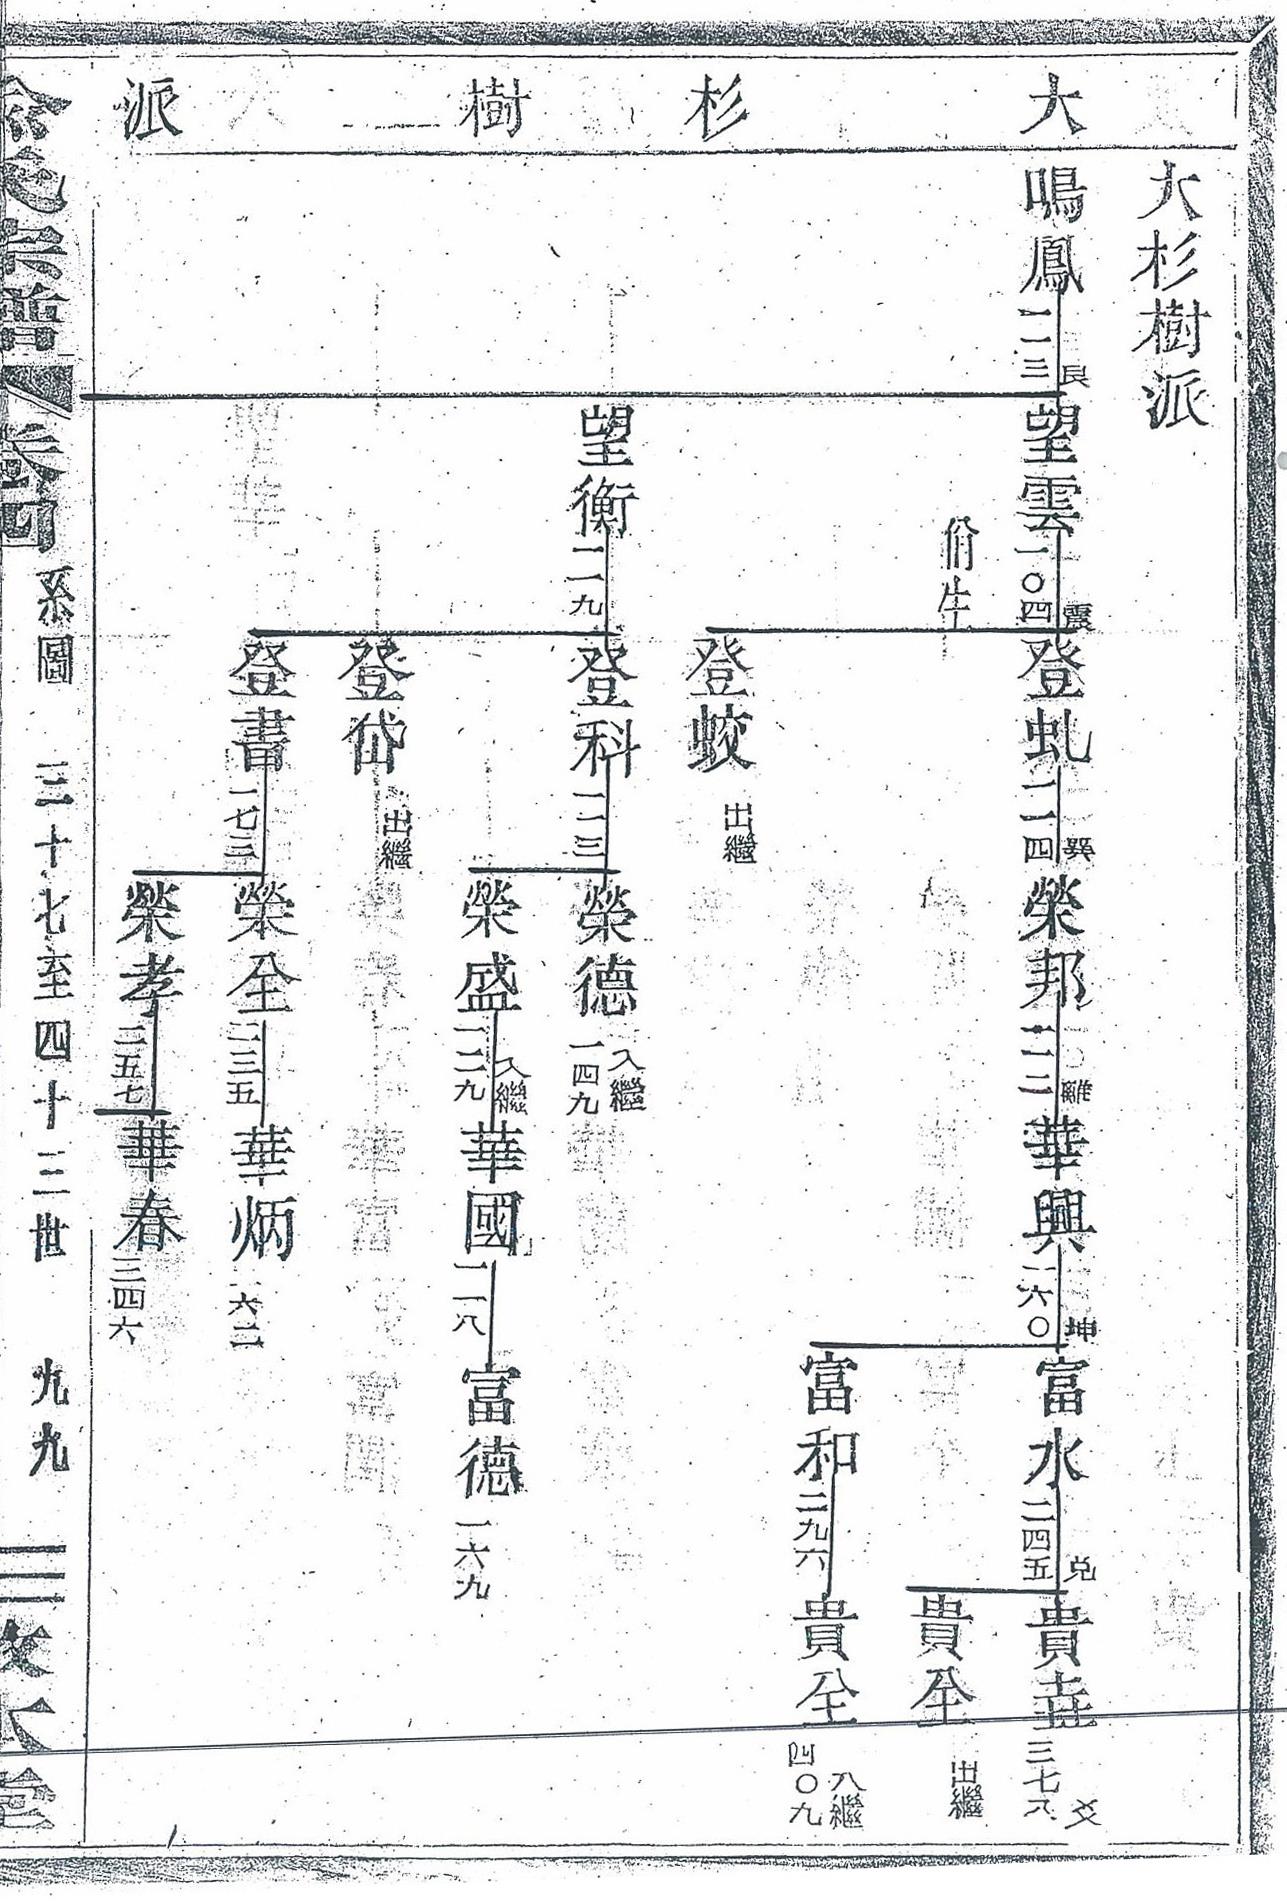 大杉樹派
大杉樹派
鳴鳳
一二三
艮
望雲
一〇四
震
登虬
一一四
巽
榮邦
離
華興
一六〇
坤
富水
二四五
兌
貴
三七八
爻
貴全
出繼
富和
二九六
貴全
四〇九
入繼
登蛟
出繼
望衡
一一九
登科
一二三
榮德
一四九
入繼
榮盛
一二九
入繼
華國
一一八
富德
一六九
登岱
出繼
登書
一七三
榮全
二三五
華炳
一六二
榮孝
二五七
華春
三四六
宗譜
卷四
系圖
三十七至四十三世
九九